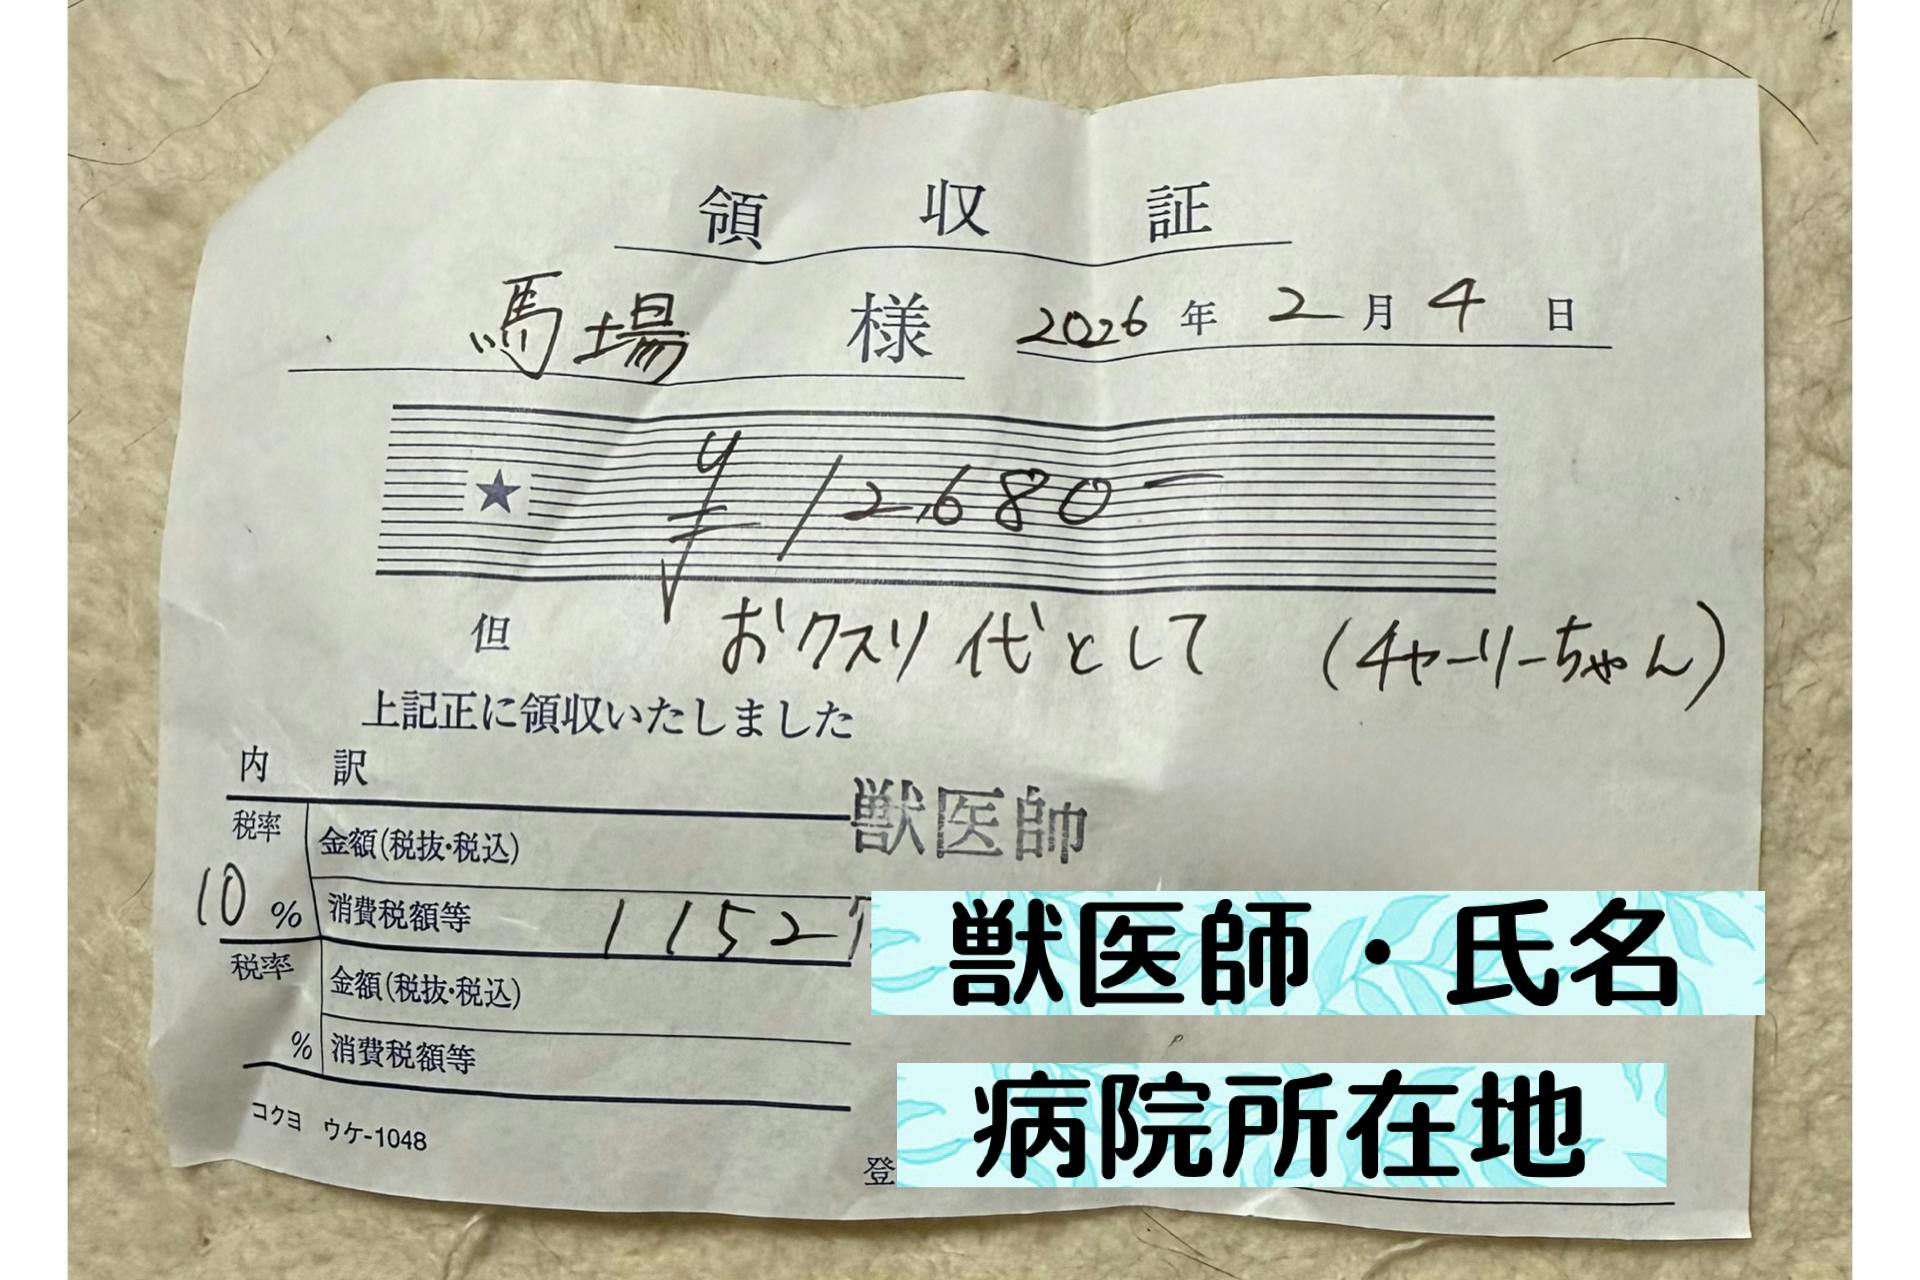 領収証
馬場 様 2026年2月4日
★ ¥12,680-
但 おクスリ代として (チャーリーちゃん)
上記正に領収いたしました
内 訳
獣医師
税率 金額(税抜・税込)
10% 消費税額等 1152
獣医師・氏名
税率 金額(税抜・税込)
% 消費税額等
病院所在地
コクヨ ウケ-1048
登